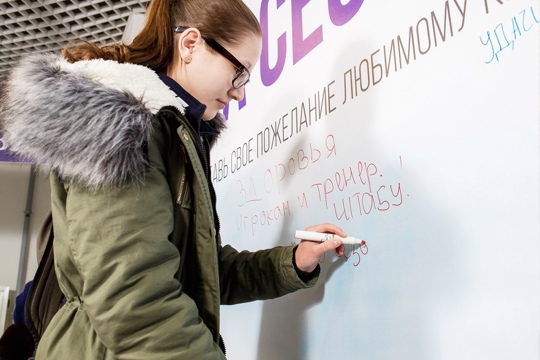 СЕЗ
АВЬ СВОЕ ПОЖЕЛАНИЕ ЛЮБИМОМУ К
УДАЧ
Здоровья
игрокам и тренер.
ШТАБУ!